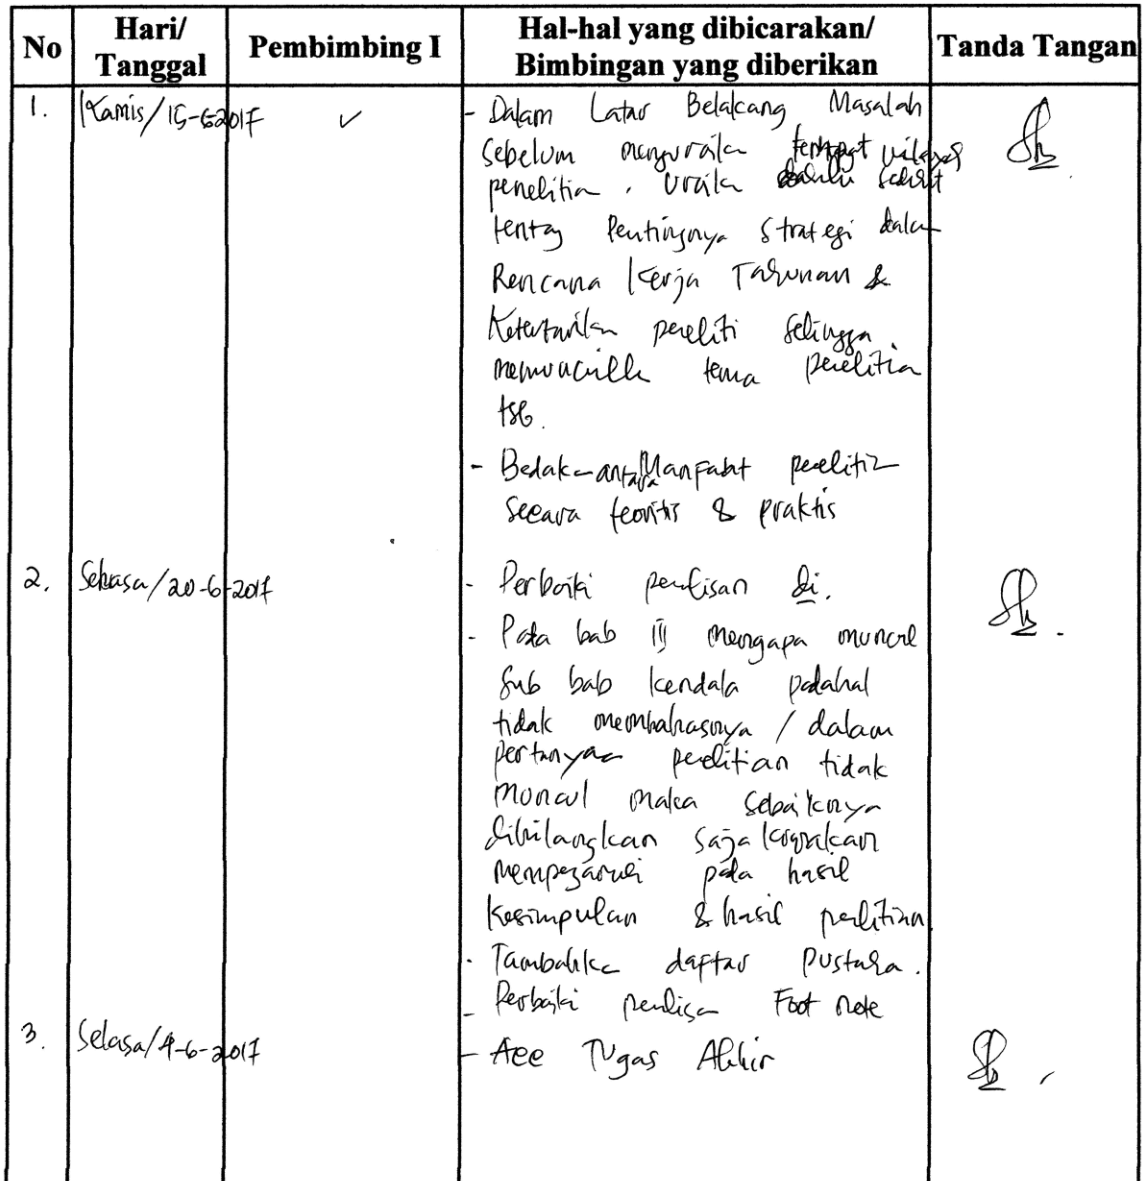 No Hari/ Tanggal Pembimbing I Hal-hal yang dibicarakan/ Bimbingan yang diberikan Tanda Tangan
1. Kamis/15-6-2017 ✓ - Dalam Latar Belakang Masalah
sebelum menguraika tempat wilayah
penelitian, uraika dahulu
tentag Pentingnya Strategi dalam
Rencana Kerja Tahunan &
Ketertarikan peneliti sehingga
tema penelitian
tsb.
- Bedakan antara Manfaat penelitian
secara teoritis & praktis
2. Selasa/20-6-2017 - Perbaiki penulisan di.
- Pada bab III mengapa muncul
sub bab kendala padahal
tidak membahasnya / dalam
pertanyaan penelitian tidak
muncul maka sebaiknya
dihilangkan saja
mempengaruhi pada hasil
kesimpulan & hasil penelitian
- Tambahkan daftar pustaka.
- Perbaiki penulisan Foot note
3. Selasa/4-6-2017 - Acc Tugas Akhir